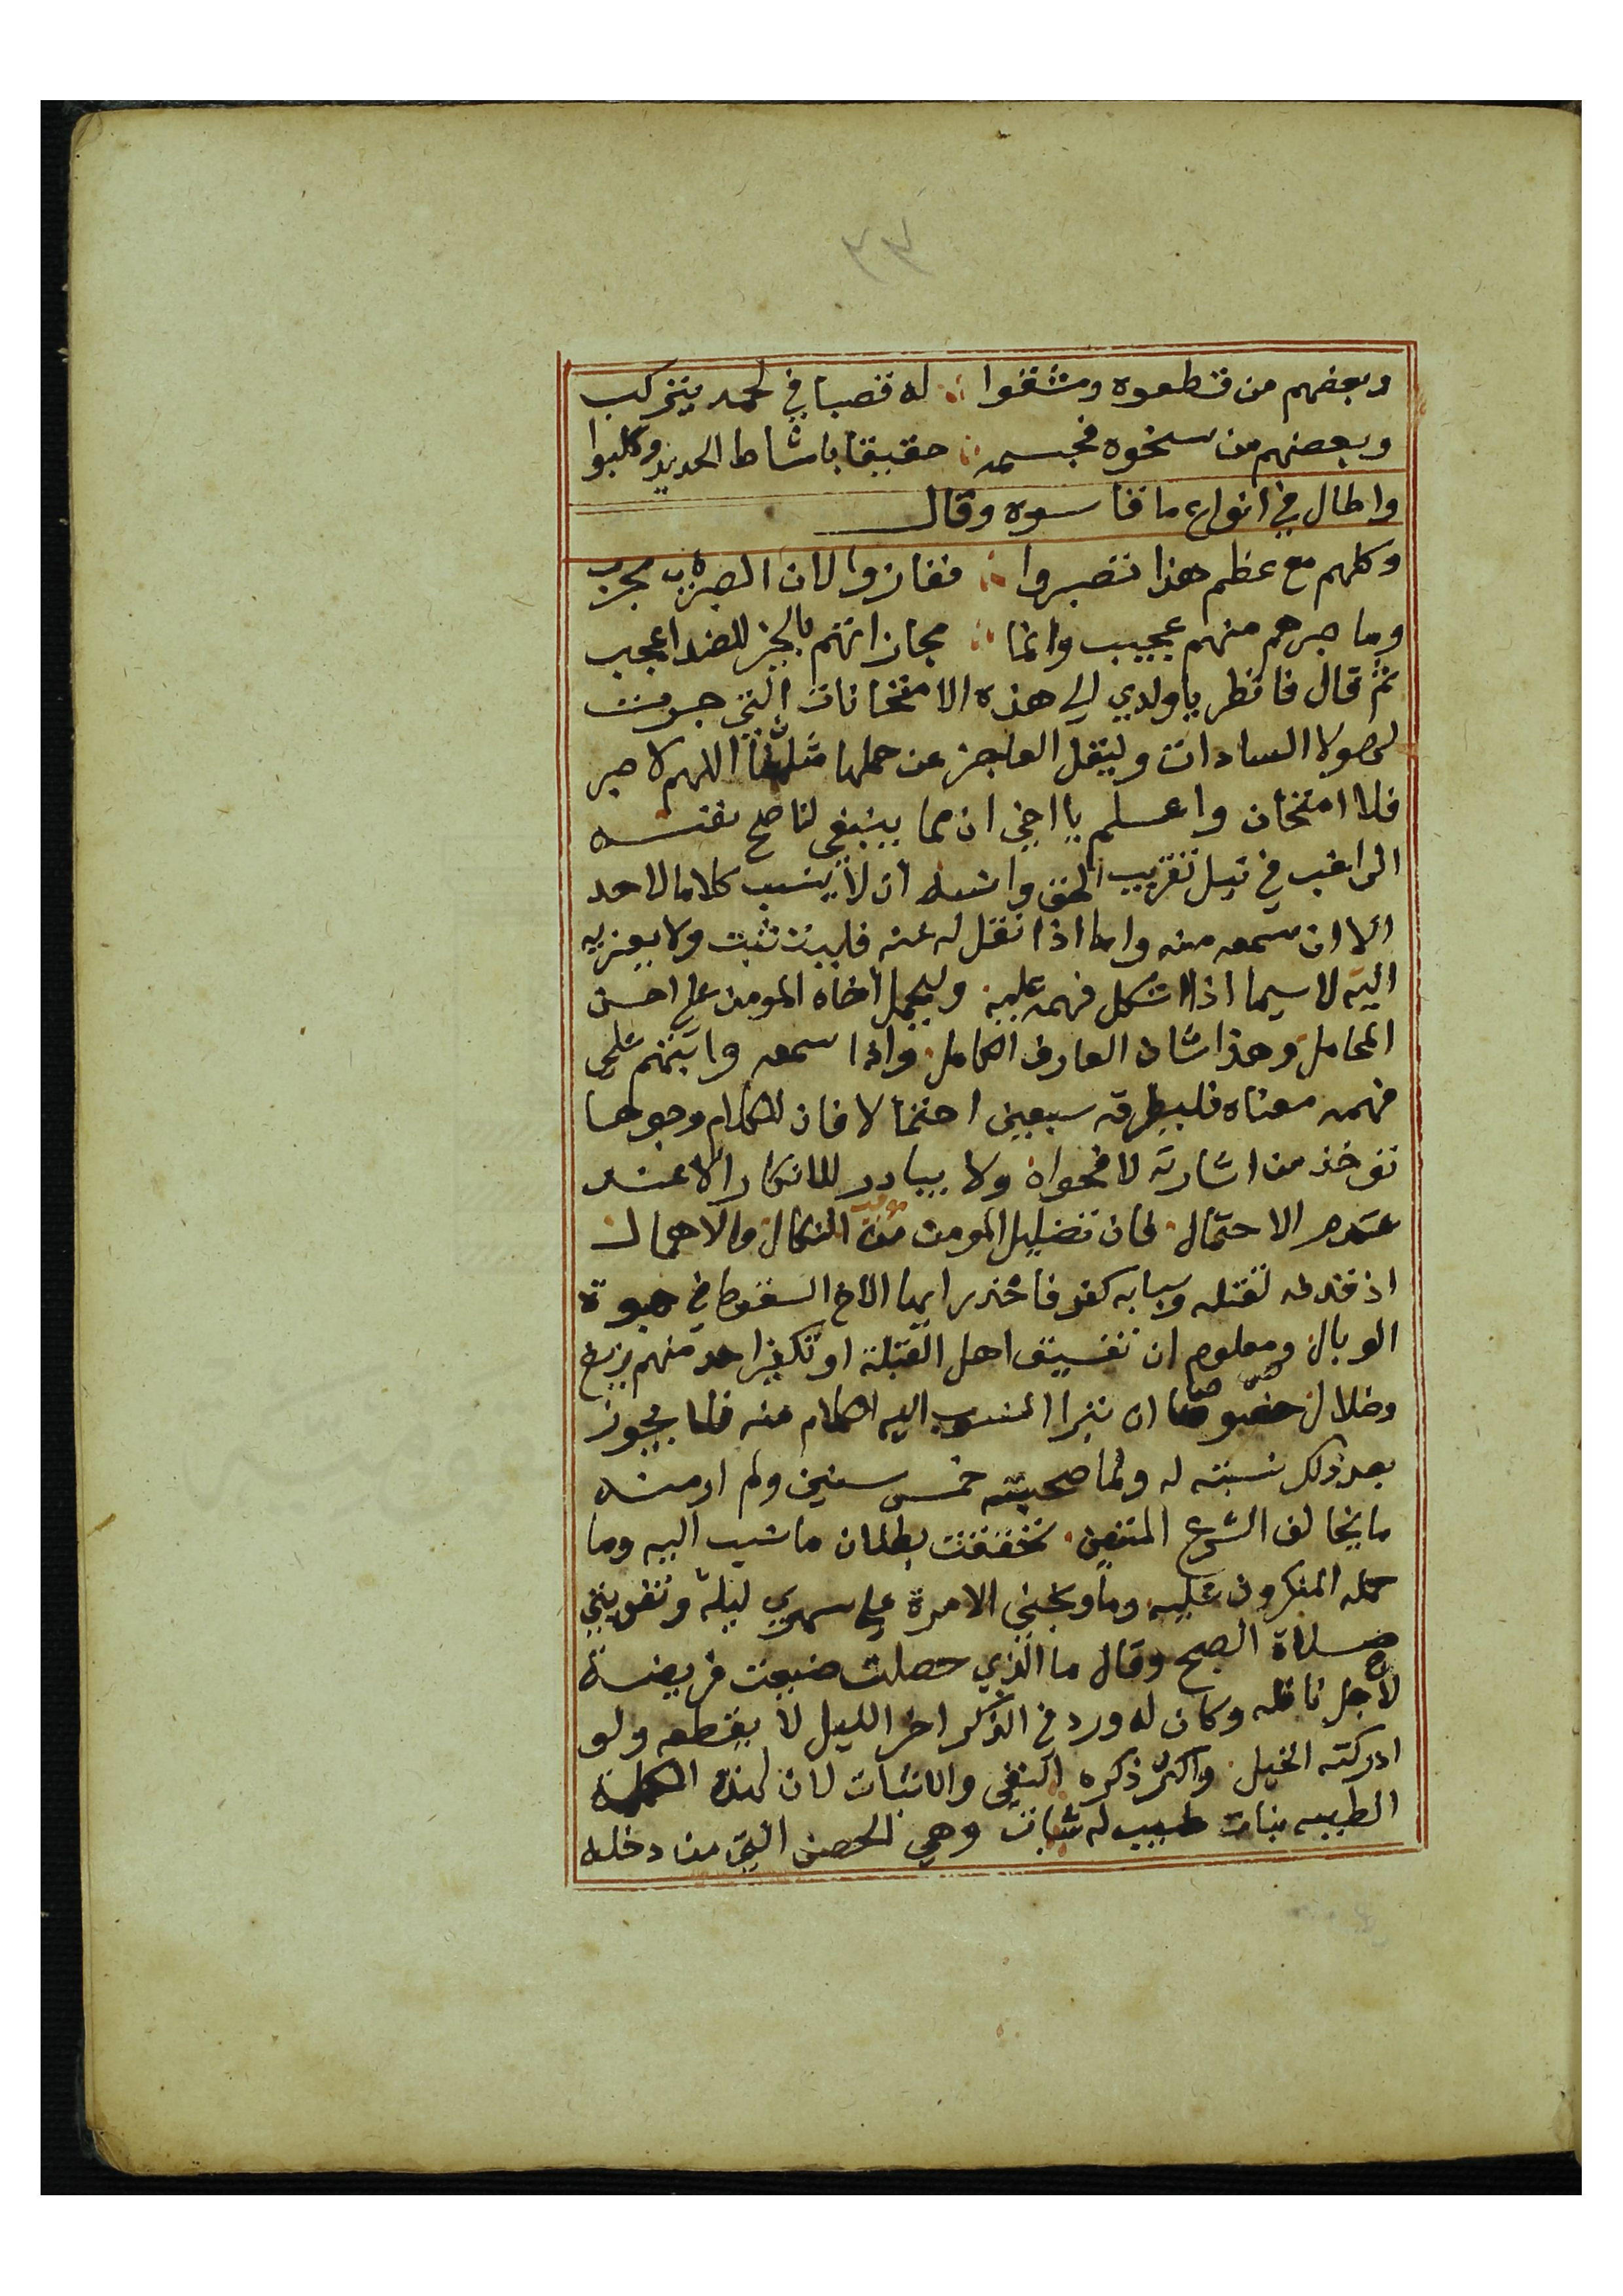 ٤٤
وبعضهم من قطعوه وشقفوا ∴ له قصبا في لحمه يتركب
وبعضهم من سخوه فجسمه ∴ حقيقا باشاط الحديد وكلبوا
واطال في انواع ما قاسوه وقال
وكلهم مع عظم هذا تصبروا ∴ ففازوا لان الصبر مجرب
وما صبرهم منهم عجيب وانما ∴ مجازاتهم بالخير للضد اعجب
ثم قال فانظر يا ولدي الى هذه الامتحانات التي جرت
لهولا السادات وليقل العاجز عن حملها مثلنا اللهم لا صبر
فلا امتحان واعلم يا اخي ان مما ينبغي لناصح نفسه
الراغب في نيل تقريب الحق وانسه ان لا ينسب كلاما لاحد
الا ان سمعه منه واما اذا نقل له عنه فليتثبت ولا يعزيه
اليه لا سيما اذا اشكل فهمه عليه وليحمل اخاه المومن على احسن
المحامل وهذا شان العارف الكامل واذا سمعه وابتهم على
فهمه معناه فليطرقه سبعين احتمالا فان للكلام وجوها
توخذ من اشارته لا فحواه ولا يبادر للانكار الا عند
عدم الاحتمال فان تضليل المومن النكال والاهمال
اذ قذفه كقتله وسبابه كفر فاحذر ايها الاخ السقوط في هوة
الوبال ومعلوم ان تفسيق اهل القبلة او تكفير احد منهم زيغ
وضلال خصوصا ان تبرا المنسوب اليه الكلام منه فلا يجوز
بعد ذلك نسبته له ولما صحبته خمس سنين ولم ار منه
ما يخالف الشرع المتين تحققت بطلان ما نسب اليه وما
حمله المنكرون عليه وما وبخني الا مرة على سهري ليلة وتفويتي
صلاة الصبح وقال ما الذي حصلت ضيعت فريضة
لاجل نافله وكان له ورد في الذكر اخر الليل لا يقطعه ولو
ادركته الخيل واكثر ذكره النفي والاثبات لان لهذه الكلمة
الطيبه بنات طيب له ثبات وهي الحصن التي من دخله